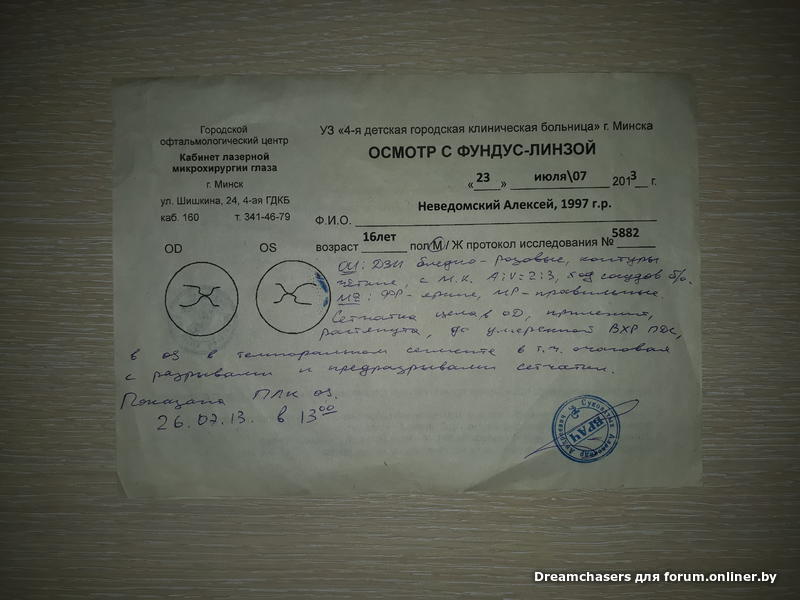 Городской
офтальмологический центр
Кабинет лазерной
микрохирургии глаза
г. Минск
ул. Шишкина, 24, 4-ая ГДКБ
каб. 160 т. 341-46-79
УЗ «4-я детская городская клиническая больница» г. Минска
ОСМОТР С ФУНДУС-ЛИНЗОЙ
«23» июля\07 2013 г.
Ф.И.О. Неведомский Алексей, 1997 г.р.
возраст 16лет пол М / Ж протокол исследования № 5882
OD OS
OU: ДЗН бледно-розовые, контуры
четкие, с М.К. A:V=2:3, ход сосудов б/о.
MZ: ФР-яркие, МР-правильные.
Сетчатка цела в OD, прилежит,
растянута, до умеренной ПВХРД,
в OS в темпоральном сегменте в т.ч. очаговая
с разрывами и предразрывами сетчатки.
Показана ПЛК OS.
26.07.13. в 13 00
ВРАЧ
Dreamchasers для forum.onliner.by